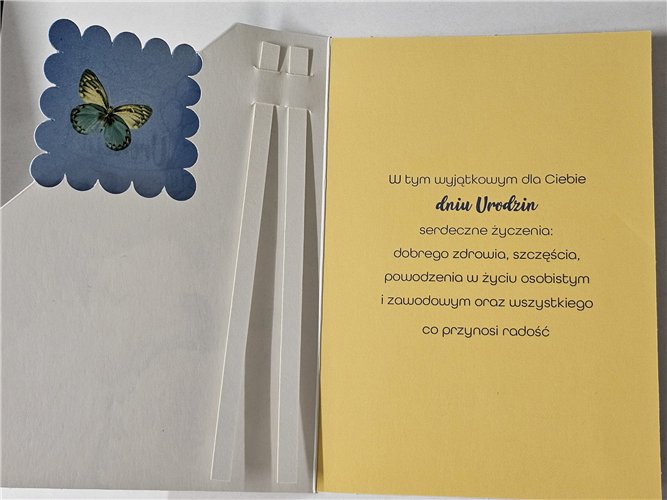 W tym wyjątkowym dla Ciebie
dniu Urodzin
serdeczne życzenia:
dobrego zdrowia, szczęścia,
powodzenia w życiu osobistym
i zawodowym oraz wszystkiego
co przynosi radość